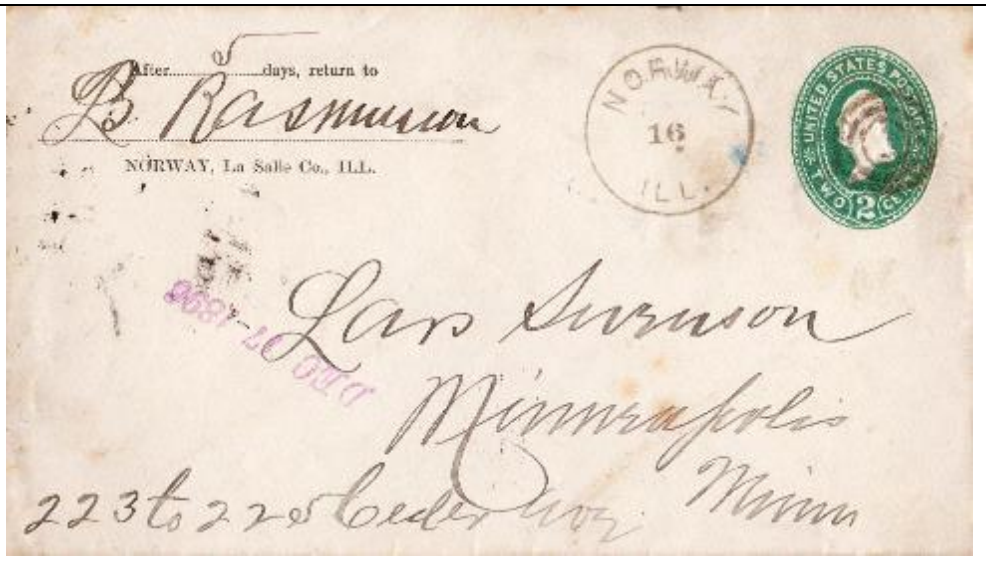 After 5 days, return to
B Rasmusson
NORWAY, La Salle Co., ILL.
NORWAY
16
ILL.
UNITED STATES POSTAGE
TWO 2 CENTS
DEC 17 1896
Lars Swenson
Minneapolis
Minn
223 to 225 Ceder